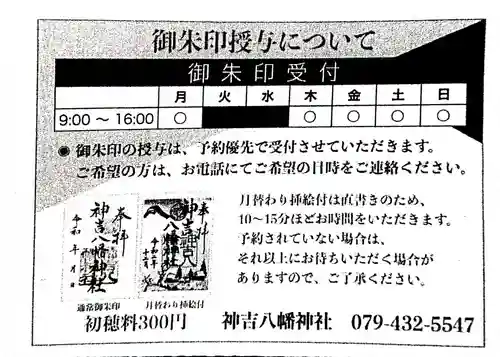 御朱印授与について
御朱印受付
月 火 水 木 金 土 日
9:00 ～ 16:00 ○ ○ ○ ○ ○
◉ 御朱印の授与は、予約優先で受付させていただきます。
ご希望の方は、お電話にてご希望の日時をご連絡ください。
月替わり挿絵付は直書きのため、
10～15分ほどお時間をいただきます。
予約されていない場合は、
それ以上にお待ちいただく場合が
ありますので、ご了承ください。
奉拝
神吉八幡神社
令和 年 月 日
奉拝
神吉八幡神社
通常御朱印 月替わり挿絵付
初穂料300円 神吉八幡神社 079-432-5547